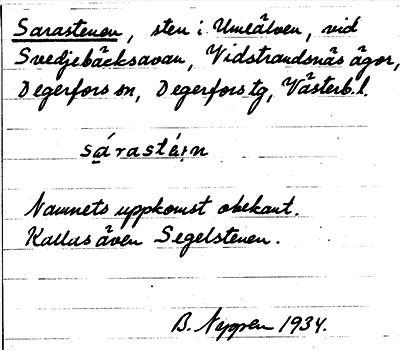 Sarastenen, sten i Umeälven, vid
Svedjebäcksavan, Vidstrandsnäs ägor,
Degerfors sn, Degerfors tg, Västerb. l.
sárastèin
Namnets uppkomst obekant.
Kallas även Segelstenen.
B. Nyppen 1934.